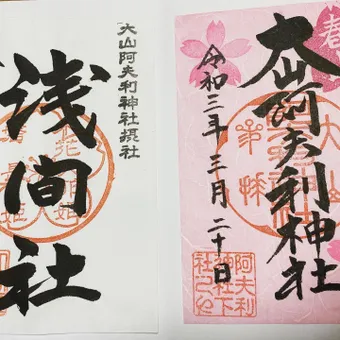 春
大山阿夫利神社
令和三年三月二十日
阿夫利
神社下
社之印
大山阿夫利神社摂社
浅间社